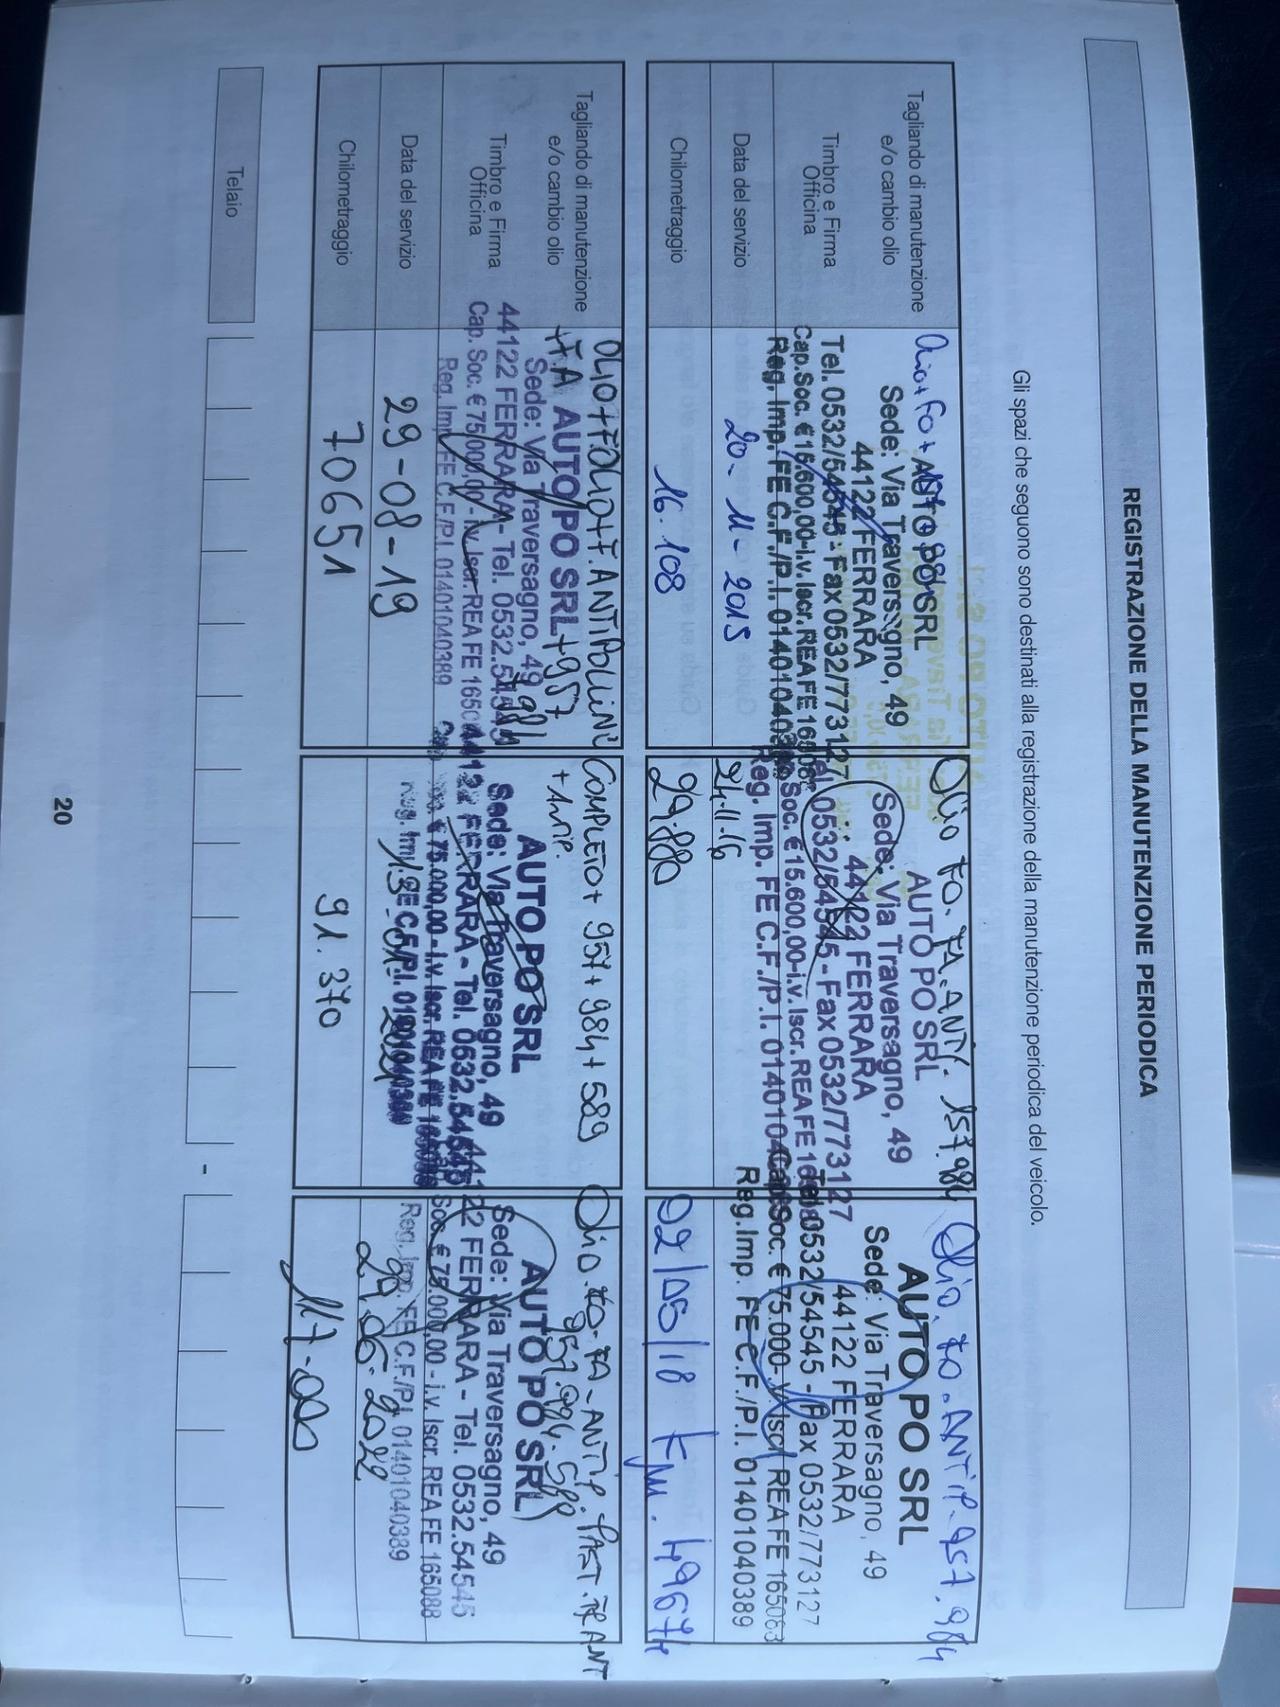 REGISTRAZIONE DELLA MANUTENZIONE PERIODICA
Gli spazi che seguono sono destinati alla registrazione della manutenzione periodica del veicolo.
Tagliando di manutenzione
e/o cambio olio
Timbro e Firma
Officina
Data del servizio
Chilometraggio
AUTO PO SRL
Sede: Via Traversagno, 49
44122 FERRARA
Tel. 0532/54545 - Fax 0532/773127
Cap. Soc. € 15.600,00-i.v. Iscr. REA FE 165088
Reg. Imp. FE C.F./P.I. 01401040389
20-11-2015
16.108
Olio FO. FA. ANTI. 957.984
AUTO PO SRL
Sede: Via Traversagno, 49
44122 FERRARA
Tel. 0532/54545 - Fax 0532/773127
Cap. Soc. € 15.600,00-i.v. Iscr. REA FE 165088
Reg. Imp. FE C.F./P.I. 01401040389
24-11-16
29880
Olio. FO. ANTIP. 957.984
AUTO PO SRL
Sede: Via Traversagno, 49
44122 FERRARA
Tel. 0532/54545 - Fax 0532/773127
Cap. Soc. € 75.000- REA FE 165088
Reg.Imp. FE C.F./P.I. 01401040389
02/05/18 Km. 49674
Tagliando di manutenzione
e/o cambio olio
Timbro e Firma
Officina
Data del servizio
Chilometraggio
OLIO+FOLIO+F.ANTIPOLLINE
+FA +957
+984
AUTO PO SRL
Sede: Via Traversagno, 49
44122 FERRARA - Tel. 0532.54545
Cap. Soc. € 75.000,00 - i.v. Iscr. REA FE 165088
Reg. Imp. FE C.F./P.I. 01401040389
29-08-19
70651
COMPLETO+ 957+984+589
+ Antip.
AUTO PO SRL
Sede: Via Traversagno, 49
44122 FERRARA - Tel. 0532.54545
€ 75.000,00 - i.v. Iscr. REA FE 165088
Reg. Imp. FE C.F./P.I. 01401040389
2021
91.370
Olio. FO- FA - ANTIP. PAST. FR ANT
957.984.589
AUTO PO SRL
Sede: Via Traversagno, 49
44122 FERRARA - Tel. 0532.54545
Soc. € 75.000,00 - i.v. Iscr. REA FE 165088
Reg. Imp. FE C.F./P.I. 01401040389
27.06.2022
117.000
Telaio
-
20